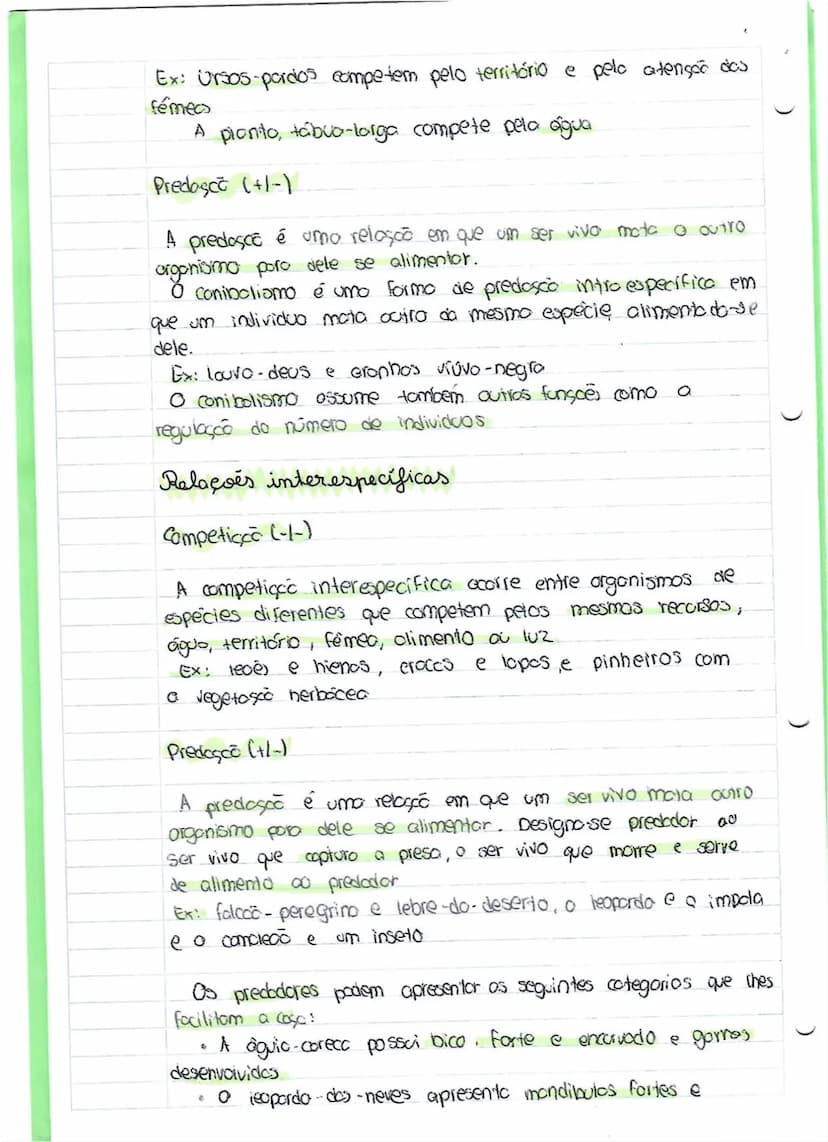 Ex: Ursos-pardos competem pelo território e pela atenção das
fémeas
A planta, tábua-larga compete pela água
Predação (+/-)
A predação é uma relação em que um ser vivo mata o outro
organismo para dele se alimentar.
O canibalismo é uma forma de predação intraespecífica em
que um individuo mata outro da mesma espécie, alimentado-se
dele.
Ex: louva-deus e aranhas viúva-negra
O canibalismo assume também outras funções como a
regulação do número de individuos
Relações interespecíficas
Competição (-/-)
A competição interespecífica ocorre entre organismos de
espécies diferentes que competem pelos mesmos recursos,
água, território, fémea, alimento ou luz
Ex: leões e hienas, e lapas, e pinheiros com
a vegetação herbácea
Predação (+/-)
A predação é uma relação em que um ser vivo mata outro
organismo para dele se alimentar. Designa-se predador ao
ser vivo que captura a presa, o ser vivo que morre e serve
de alimento ao predador
Ex: falcão-peregrino e lebre-do-deserto, o leopardo e a impala
e o camaleão e um inseto
Os predadores podem apresentar as seguintes categorias que lhes
facilitam a caça:
• A águia-careca possui bico, forte e encurvado e garras
desenvolvidas
• O leopardo-das-neves apresenta mandíbulas fortes e